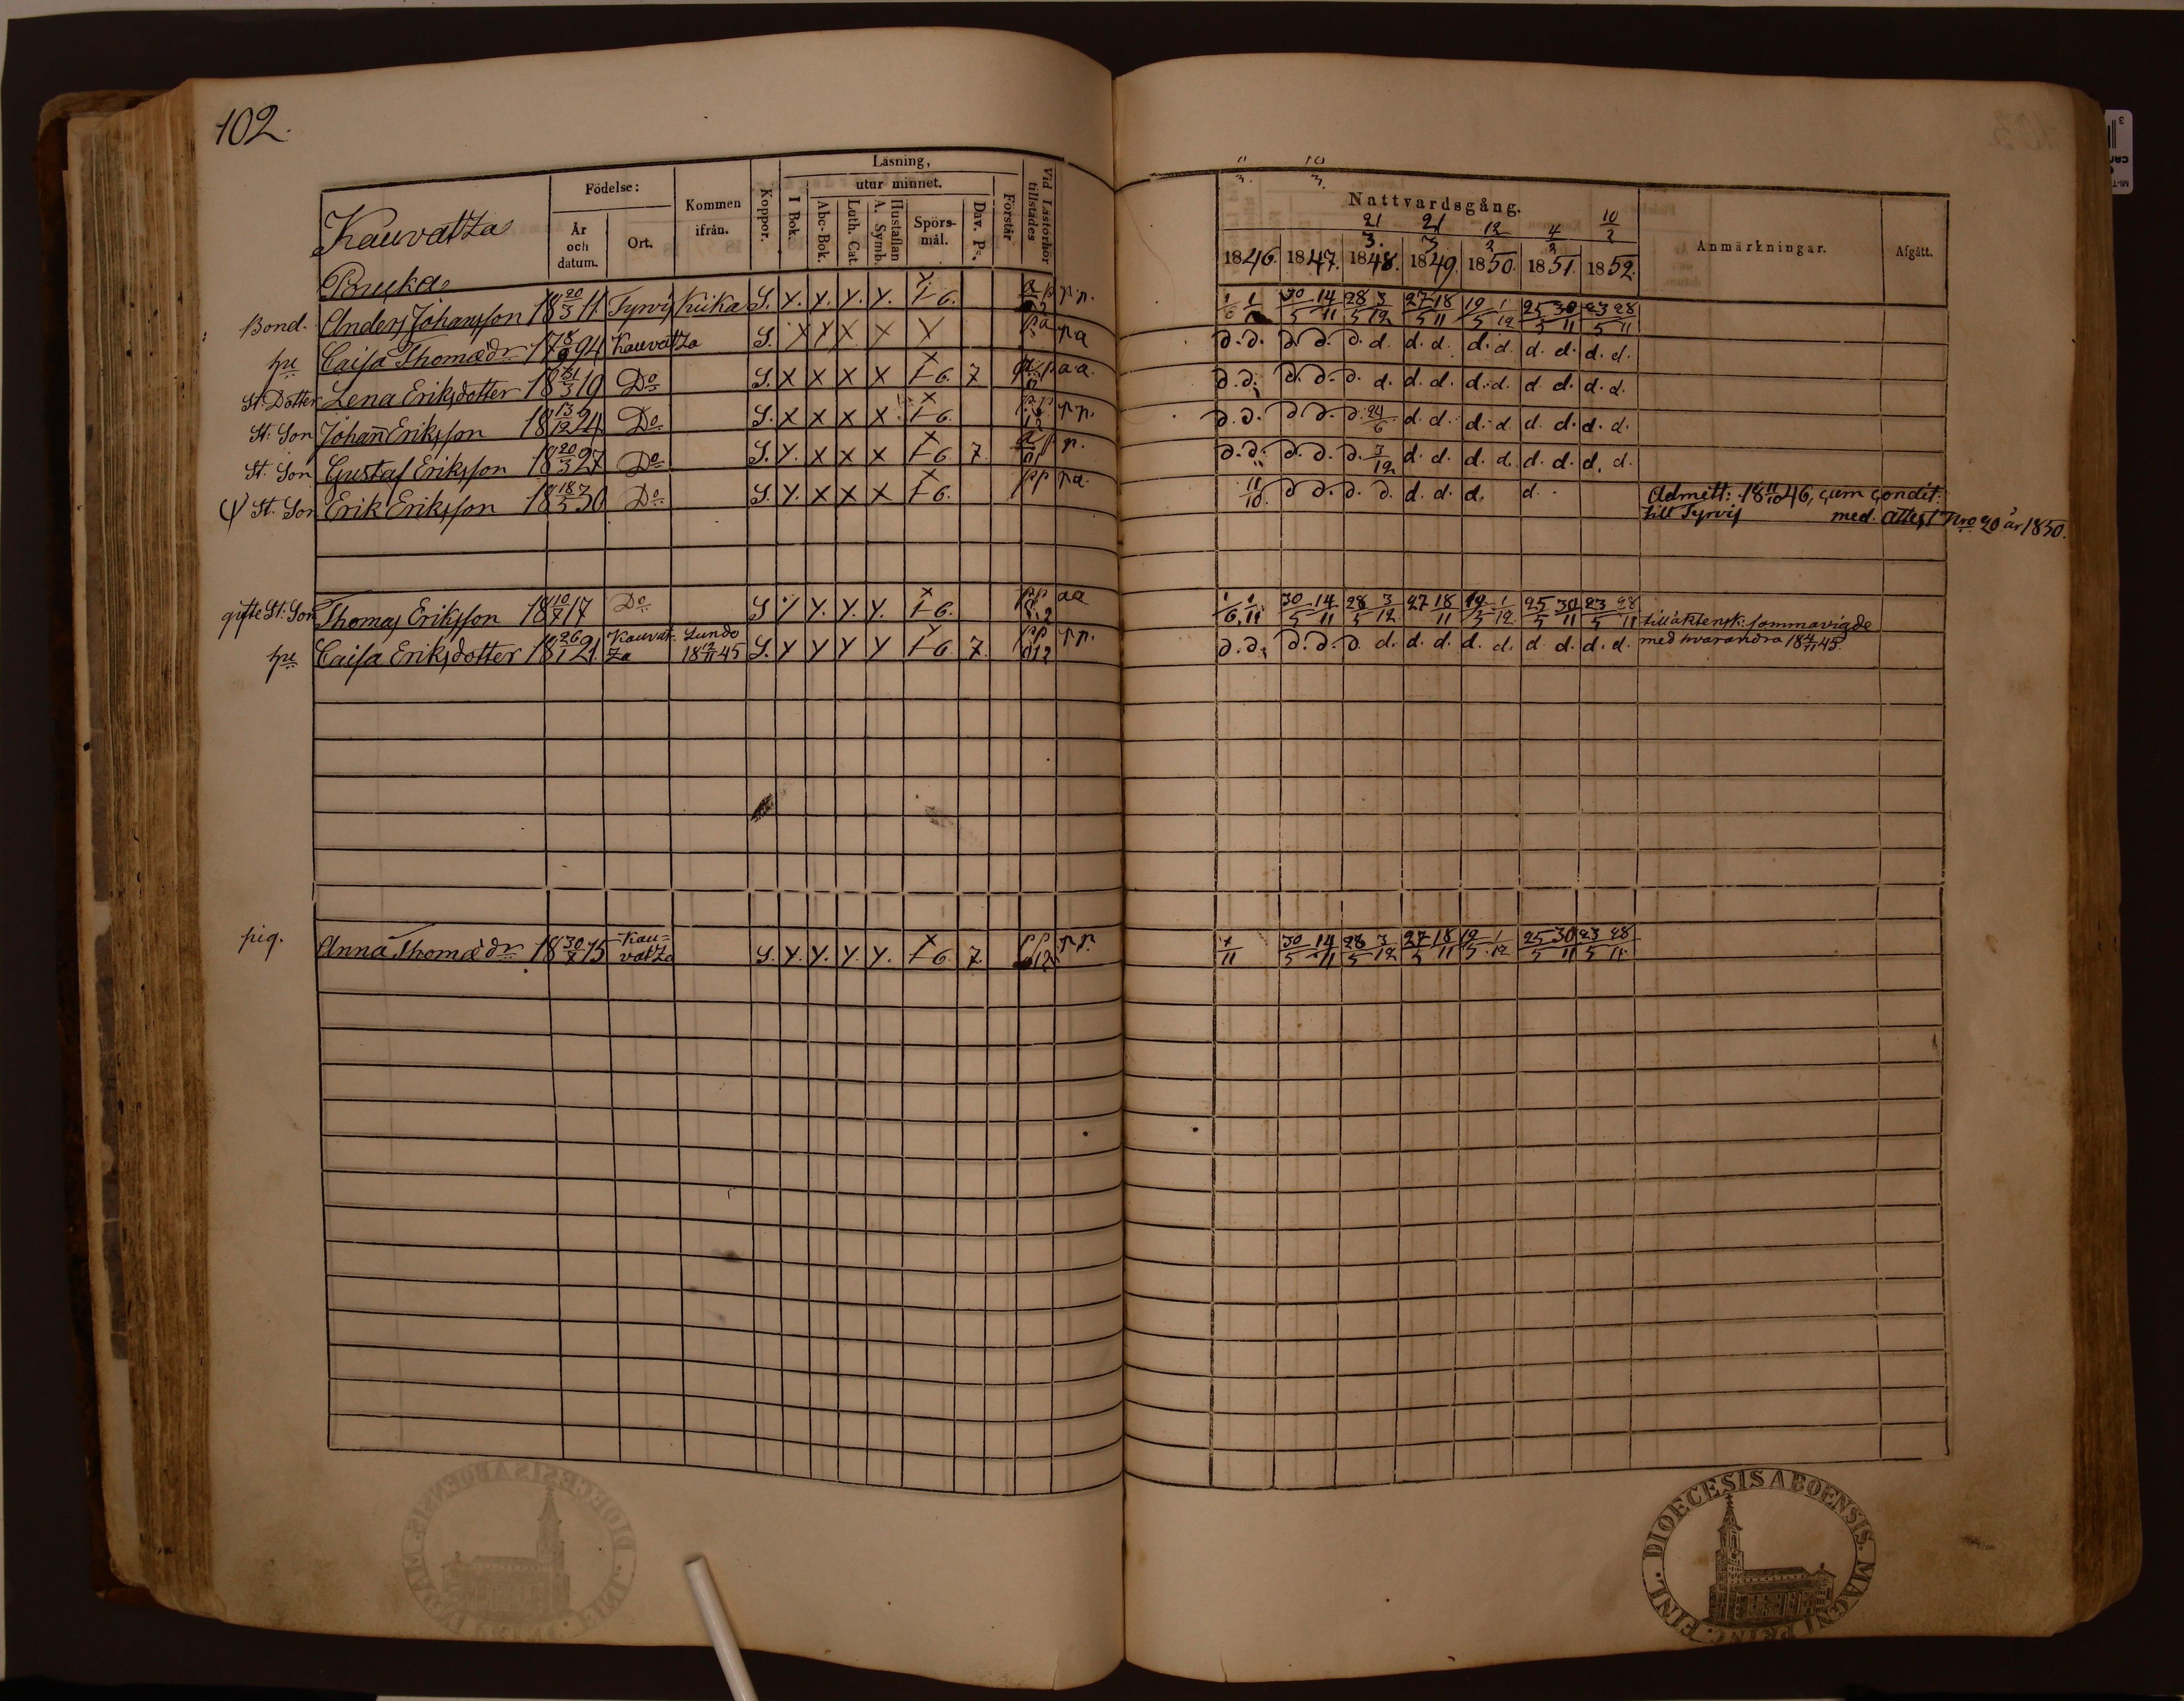 102.
Läsning,
Födelse:
utur minnet.
Kommen ifrån.
Koppor.
I Bok.
Abc-Bok.
Luth. Cat.
Hustaflan A. Symb.
Spörsmål.
Dav. Ps.
Förstår
Vid Läsförhör tillstädes
År och datum.
Ort.
Kauvatza
Nattvardsgång.
21 21 12 4 10
3. 3 2 2 2
1846. 1847. 1848. 1849. 1850. 1851. 1852.
Anmärkningar.
Afgått.
Bond. Anders Johansson 18 20/3 11. Tyrvis Kiika S. Y. Y. Y. Y. 6. 30/5 14/11 28/5 3/12 27/5 18/11 19/5 1/12 25/5 30/11 23/5 28/11
hu Caisa Thomædr 17 94 Kauvatza S. X X X X X d. d. d. d. d. d. d. d. d. d. d. d. d. d.
St. Dotter Lena Eriksdotter 18 19 Do S. X X X X 6. 7 a.a. d. d. d. d. d. d. d. d. d. d. d. d. d. d.
St. Son Johan Eriksson 18 13/12 24. Do S. X X X X 6. d. d. d. d. d. 24/6 d. d. d. d. d. d. d. d.
St. Son Gustaf Eriksson 18 20/3 27 Do S. Y. X X X 6. 7. d. d. d. d. d. 3/12 d. d. d. d. d. d. d. d.
St. Son Erik Eriksson 18 18/5 30 Do S. Y. X X X 6. 11/10. d d. d. d. d. d. d. d. Admitt: 18 11/10 46, cum condit.
till Tyrvis med. attest Nro 20 år 1850.
gifte St. Son Thomas Eriksson 18 10/7 17 Do S Y Y. Y. Y. 6. aa 30/5 14/11 28/5 3/12. 27 18/11 19/5 1/12. 25/5 30/11 23/5 28/11 till äktensk: sammavigde
hu Caisa Eriksdotter 18 26/1 21. Kauvatza Lundo 18 45 S. Y Y Y Y 6. 7. d. d. d. d. d. d. d. d. d. d. d. d. d. d. med hvarandra 18 4/11 45.
pig. Anna Thomædr 18 30/7 15 Kauvatza S. Y. Y. Y. Y. 6. 7. 30/5 14/11 28/5 3/12 27/5 18/11 19/5 1/12 25/5 30/11 23/5 28/11
DIOECESIS ABOENSIS. MAGNI PRINC: FINL.